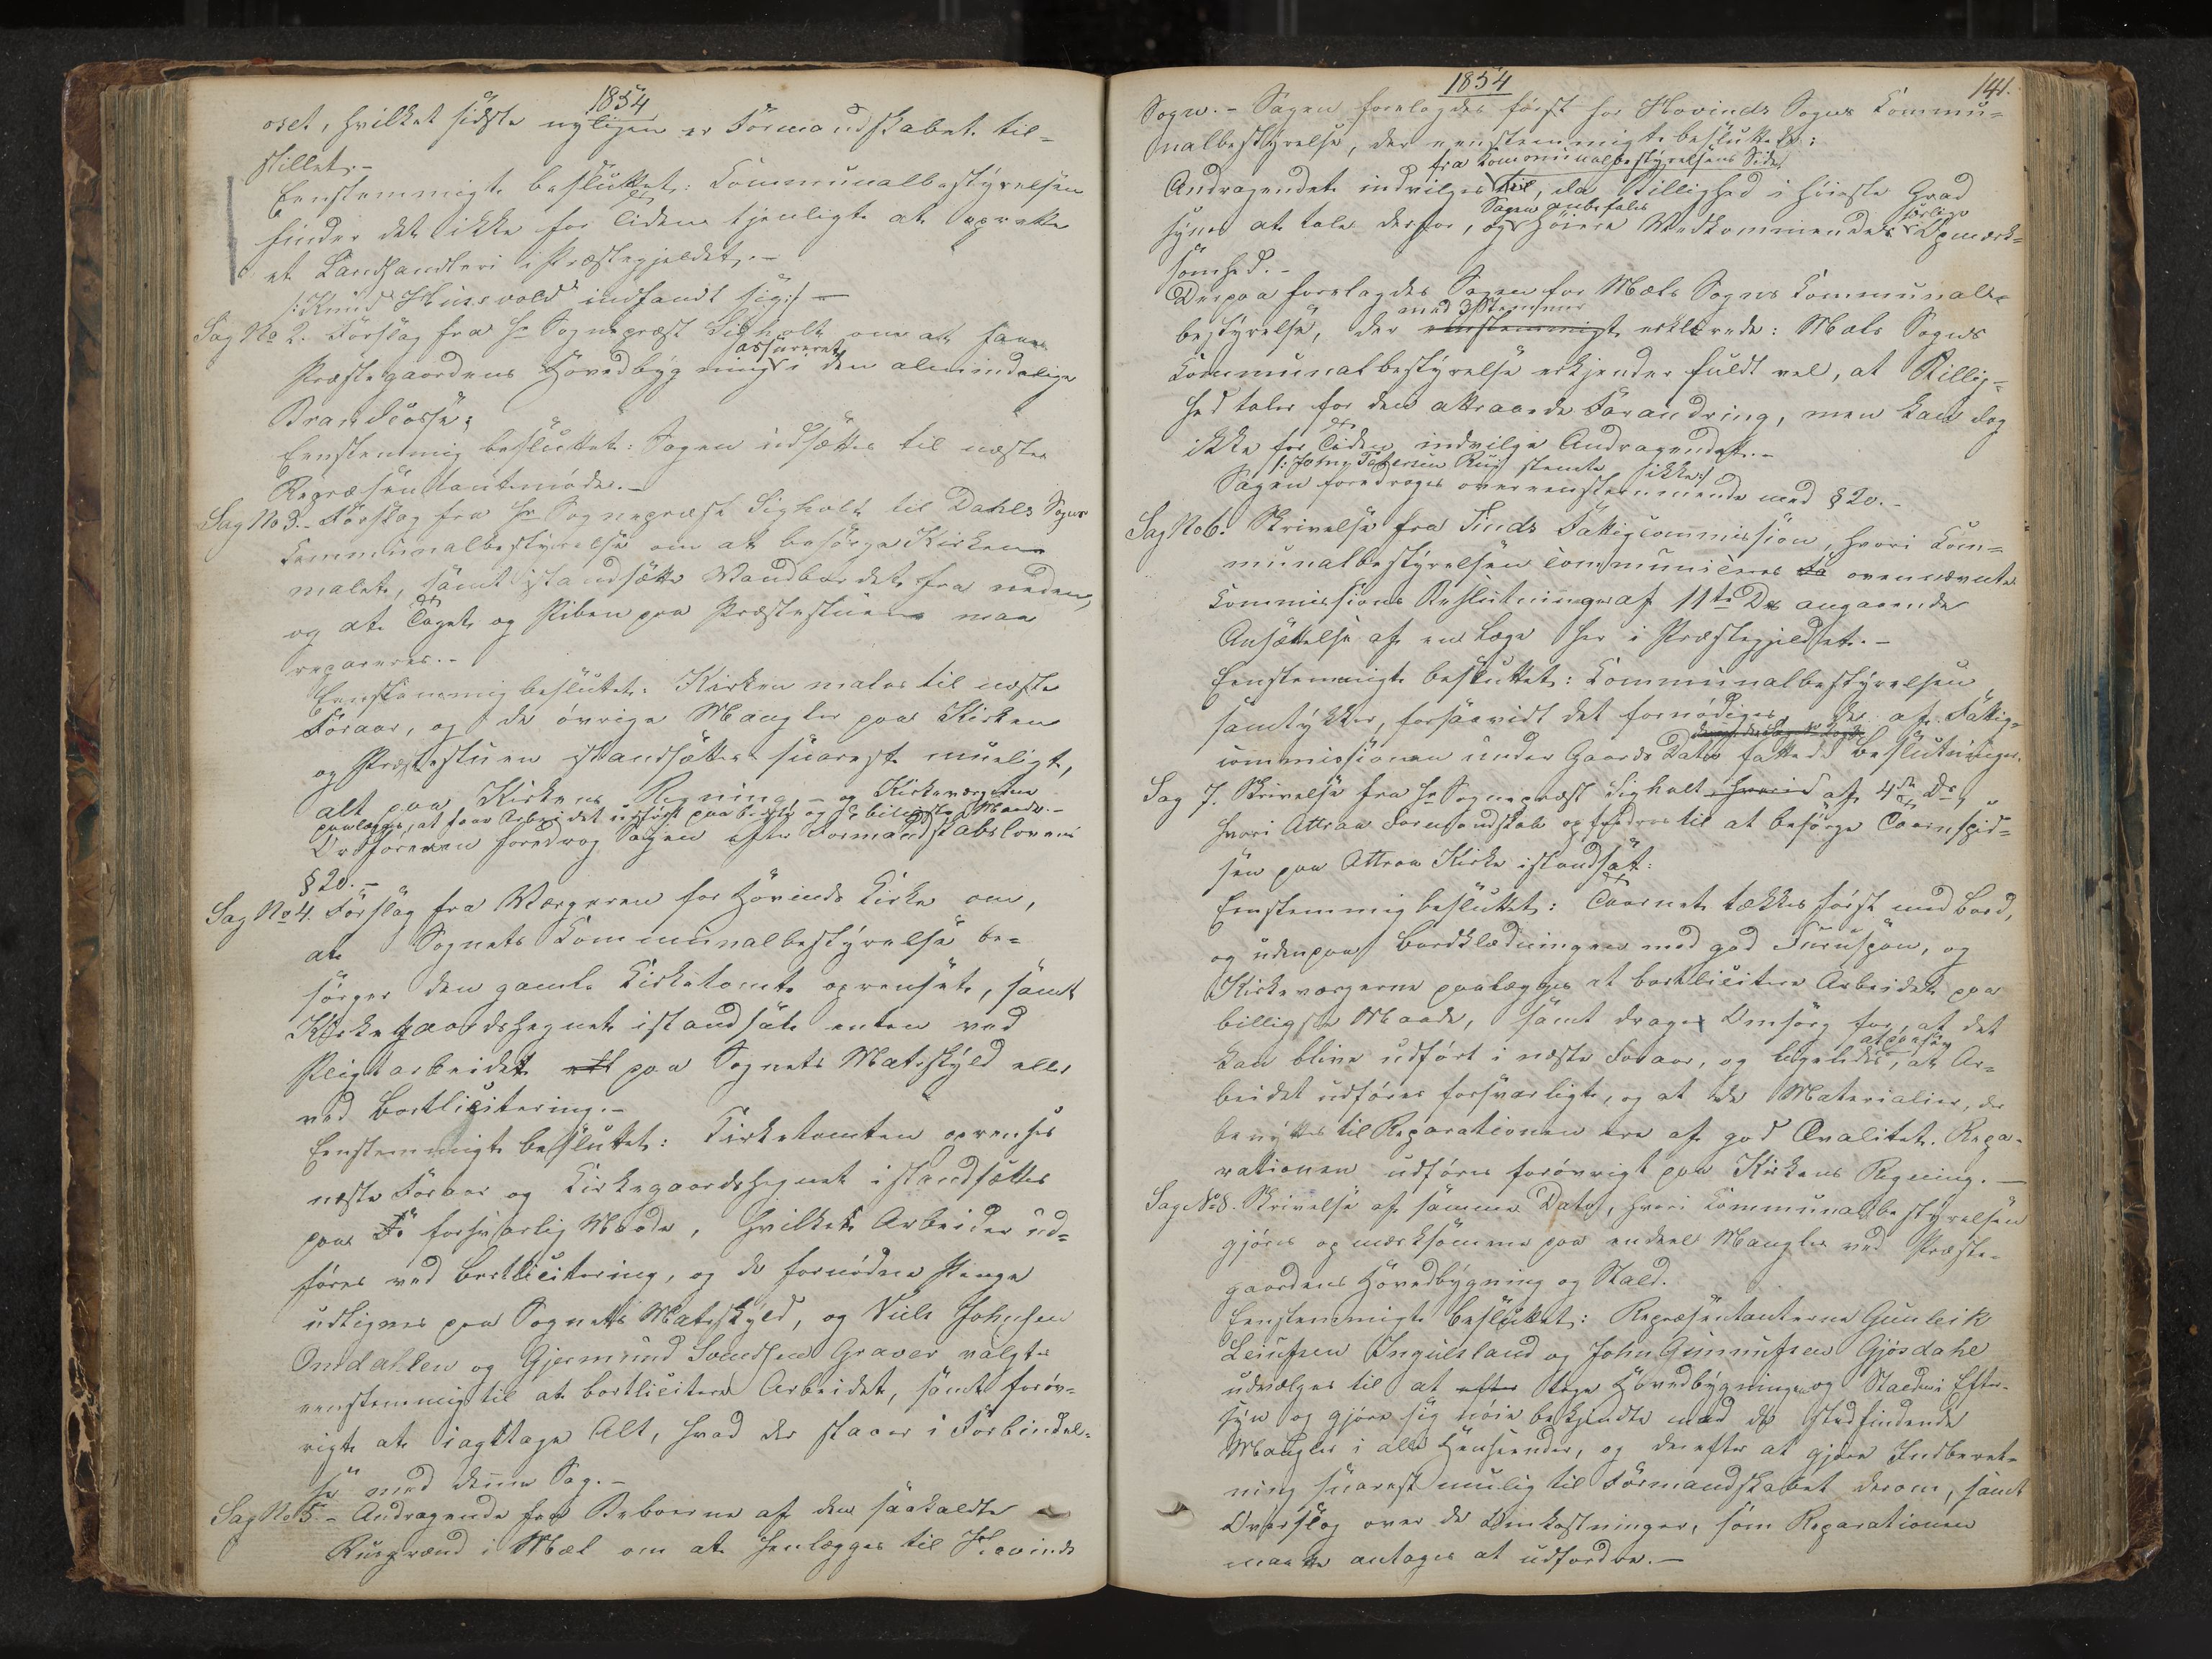 1854
oset, hvilket sidste nyligen er Formandskabet til-
stillet.-
Eenstemmigt besluttet: Communalbestyrelsen
finder det ikke for Tiden tjenligt at oprette
et Landhandleri i Præstegjeldet.-
/: Knud Husevold indfandt sig :/ -
Sag No 2. Forslag fra Hr Sognepræst Sigholt om at faae
Præstegaardens Hovedbygning assureret i den almindelige
Brandcasse;
Eenstemmig besluttet: Sagen udsættes til næste
Repræsentantmøde.-
Sag No 3.- Forslag fra Hr Sognepræst Sigholt til Dahls Sogns
Communalbestyrelse om at besørge Kirken
malet, samt istandsætte Vandbordet fra neden,
og at Taget og Piben paa Præstestuen maa
repareres.-
Eenstemmig besluttet: Kirken males til næste
Foraar, og de øvrige Mangler paa Kirken
og Præstestuen istandsættes snarest mueligt,
alt paa Kirkens Regning - og Kirkeværgerne
paalægges, at faae Arbeidet udført paa bedste og billigste Maade.-
Ordføreren foredrog Sagen efter Formandskabslovens
§ 20.-
Sag No 4. Forslag fra Værgeren for Hovinds Kirke om,
at Sognets Communalbestyrelse be-
sørger den gamle Kirketomt oprenset, samt
Kirkegaardshegnet istandsat enten ved
Pligtarbeidet paa Sognets Matrskyld eller
ved Bortlicitering.-
Eenstemmigt besluttet: Kirketomten oprenses
næste Foraar og Kirkegaardshegnet istandsættes
paa forsvarlig Maade, hvilket Arbeider ud-
føres ved Bortlicitering, og de fornødne Penge
udlignes paa Sognets Matrskyld, og Niels Johnsen
Omdahlen og Gjermund Svendsen Graver valgte
eenstemmig til at bortlicitere Arbeidet, samt forøv-
rigt at iagttage Alt, hvad der staaer i Forbindel-
se med denne Sag.-
Sag No 5.- Andragende fra Beboerne af den saakaldte
Ruegrænd i Mæl om at henlægges til Hovinds
1854
141.
Sogn.- Sagen forelagdes først for Hovinds Sogns Commu-
nalbestyrelse, der eenstemmigt besluttede:
fra Communalbestyrelsens Side
Andragendet indvilges, da Billighed i høieste Grad
Sagen anbefales særlige
synes at tale derfor, og Høiere Vedkommendes Opmærk-
somhed.-
Derpaa forelagdes Sagen for Mæls Sogns Communal-
med 3 Stemmer
bestyrelse, der eenstemmigt erklærede: Mæls Sogns
Communalbestyrelse erkjender fuldt vel, at Billig-
hed taler for den attraaede Forandring, men kan dog
ikke for Tiden indvilge Andragendet.-
/: John Petersen Rue stemte ikke :/
Sagen foredroges overeensstemmende med § 20.-
Sag No 6. Skrivelse fra Tinds Fattigcommission, hvori Com-
munalbestyrelsen communiceres ovennævnte
Commissions Beslutninger af 11te Ds angaaende
Ansættelse af en Læge her i Præstegjeldet.-
Eenstemmigt besluttet: Communalbestyrelsen
samtykker, forsaavidt det fornødiges, de af Fattig-
commissionen under Gaards Dato fattede Beslutninger.
Sag 7. Skrivelse fra Hr Sognepræst Sigholt af 4de Ds,
hvori Attraa Formandskab opfordres til at besørge Taarnspid-
sen paa Attraa Kirke istandsat:
Eenstemmig besluttet: Taarnet tækkes først med Bord,
og udenpaa Bordklædningen med god Furuspon, og
Kirkeværgerne paalægges at bortlicitere Arbeidet paa
billigste Maade, samt drage Omsorg for, at det
kan blive udført i næste Foraar, og ligeledes at paasee, at Ar-
beidet udføres forsvarligt, og at de Materialier, der
benyttes til Reparationen ere af god Qvalitet. Repa-
rationen udføres forøvrigt paa Kirkens Regning.-
Sag No 8. Skrivelse af samme Dato, hvori Communalbestyrelsen
gjøres opmærksomme paa endeel Mangler ved Præste-
gaardens Hovedbygning og Stald.
Eenstemmigt besluttet: Repræsentanterne Gunleik
Leiufsen Ingulsland og John Gunnufsen Gjøsdahl
udvælges til at efter tage Hovedbygningen og Stalden i Efter-
syn og gjøre sig nøie bekjendte med de stedfindende
Mangler i alle Henseender, og derefter at gjøre Indberet-
ning snarest muelig til Formandskabet derom, samt
Overslag over de Omkostninger, som Reparationen
maatte antages at udfordre.-